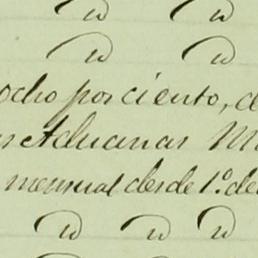 id id
id id
ocho por ciento, d
Aduanas M
mensual desde 1.º de
id id id